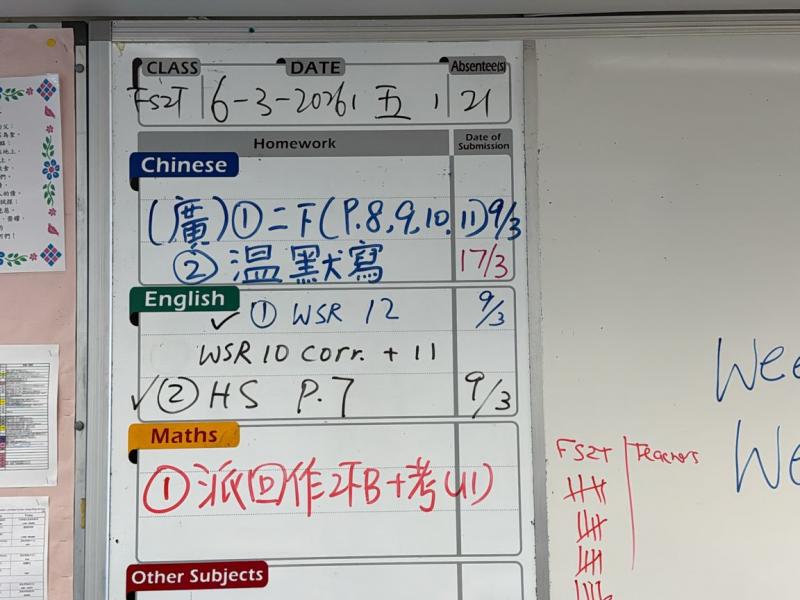 CLASS DATE Absentee(s)
FS2T 6-3-2026, 五, 21
Homework Date of Submission
Chinese
(廣)①二下(P.8,9,10,11) 9/3
② 溫默寫 17/3
English
✓ ① WSR 12 9/3
WSR 10 corr. + 11
✓ ② HS P.7 9/3
Maths
①派回作2下B+考(U1)
Other Subjects
Wee
We
FS2T Teachers